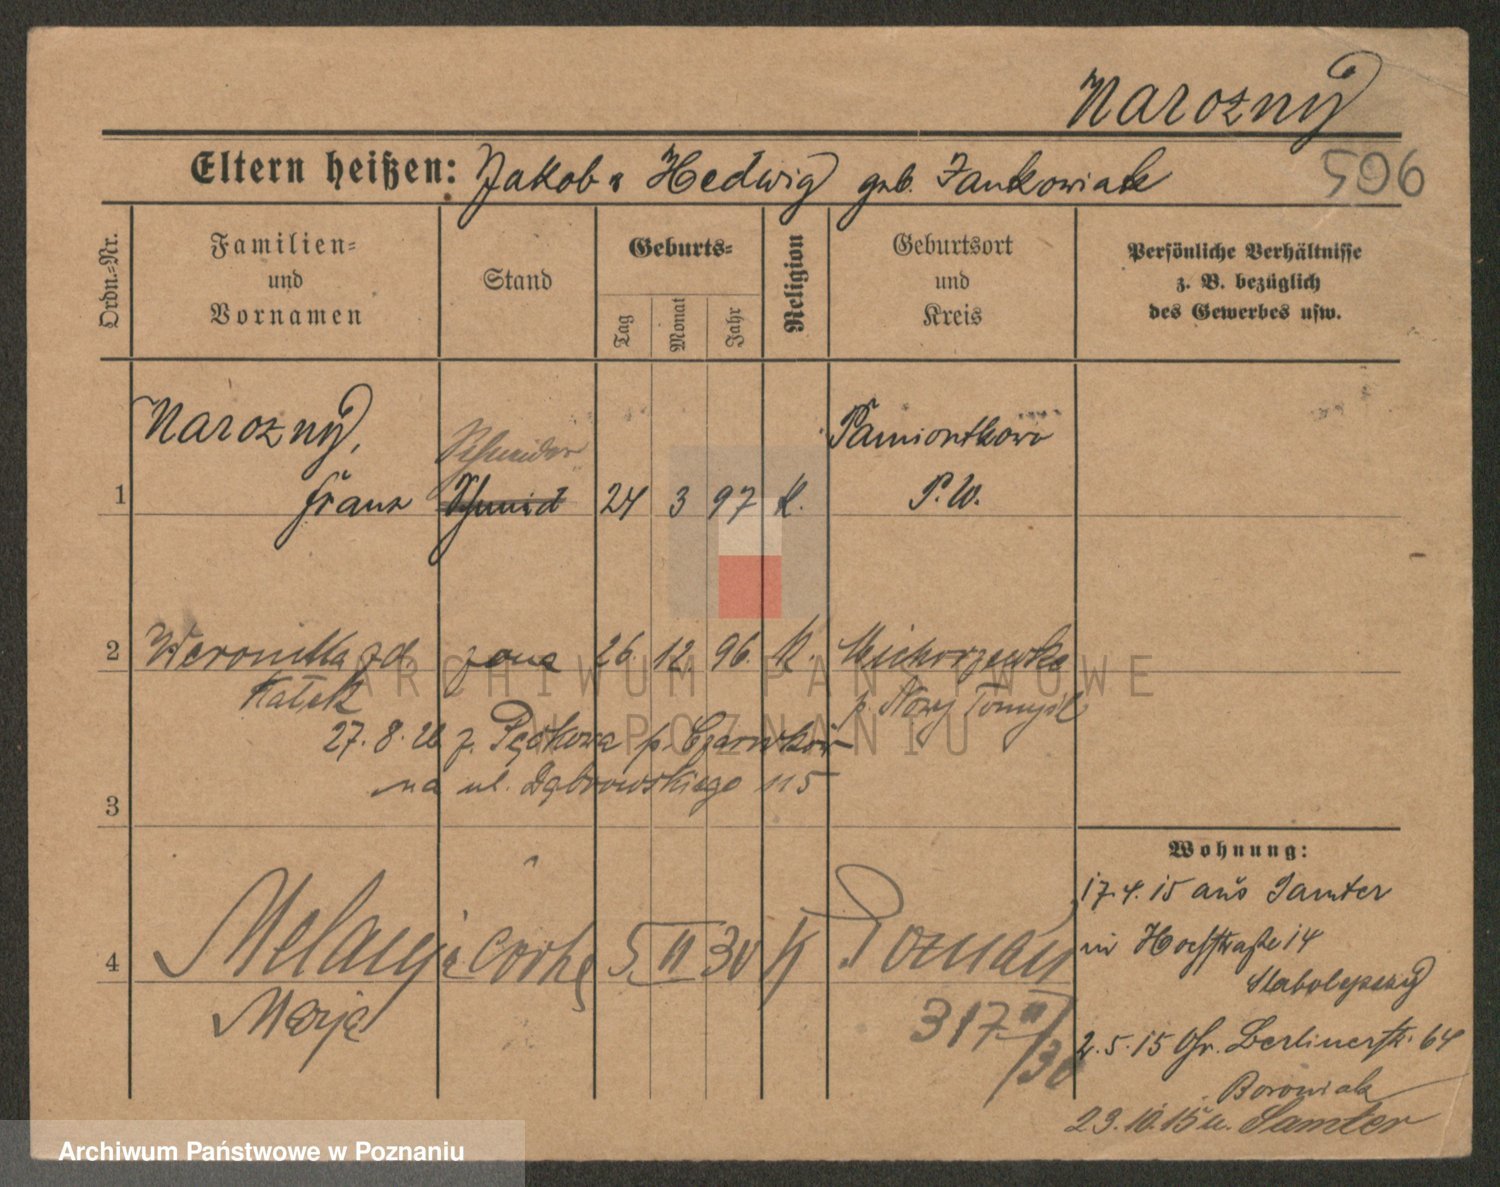 Narozny
Eltern heißen: Jakob u Hedwig geb. Jankowiak
506
Ordn.-Nr.
Familien- und Vornamen
Stand
Geburts-
Tag
Monat
Jahr
Religion
Geburtsort und Kreis
Persönliche Verhältnisse
z. B. bezüglich
des Gewerbes usw.
Narozny,
Schneider
Pamiontkowo
1 Franz Schmied 24 3 97 K. P.W.
2 Weronika żona 26. 12. 96. K.
p. Nowy Tomyśl
27. 8. z. p. Czarnków
na ul. Dąbrowskiego 115
3
Wohnung:
17.4.15 aus Samter
Hochstraße 14
4 Melanja córkę 5 II 30 K Poznań
Marja
317 II/30
2.5.15 Gr. Berlinerstr. 64
Borowiak
23.10.15 n. Samter
ARCHIWUM PAŃSTWOWE
W POZNANIU
Archiwum Państwowe w Poznaniu